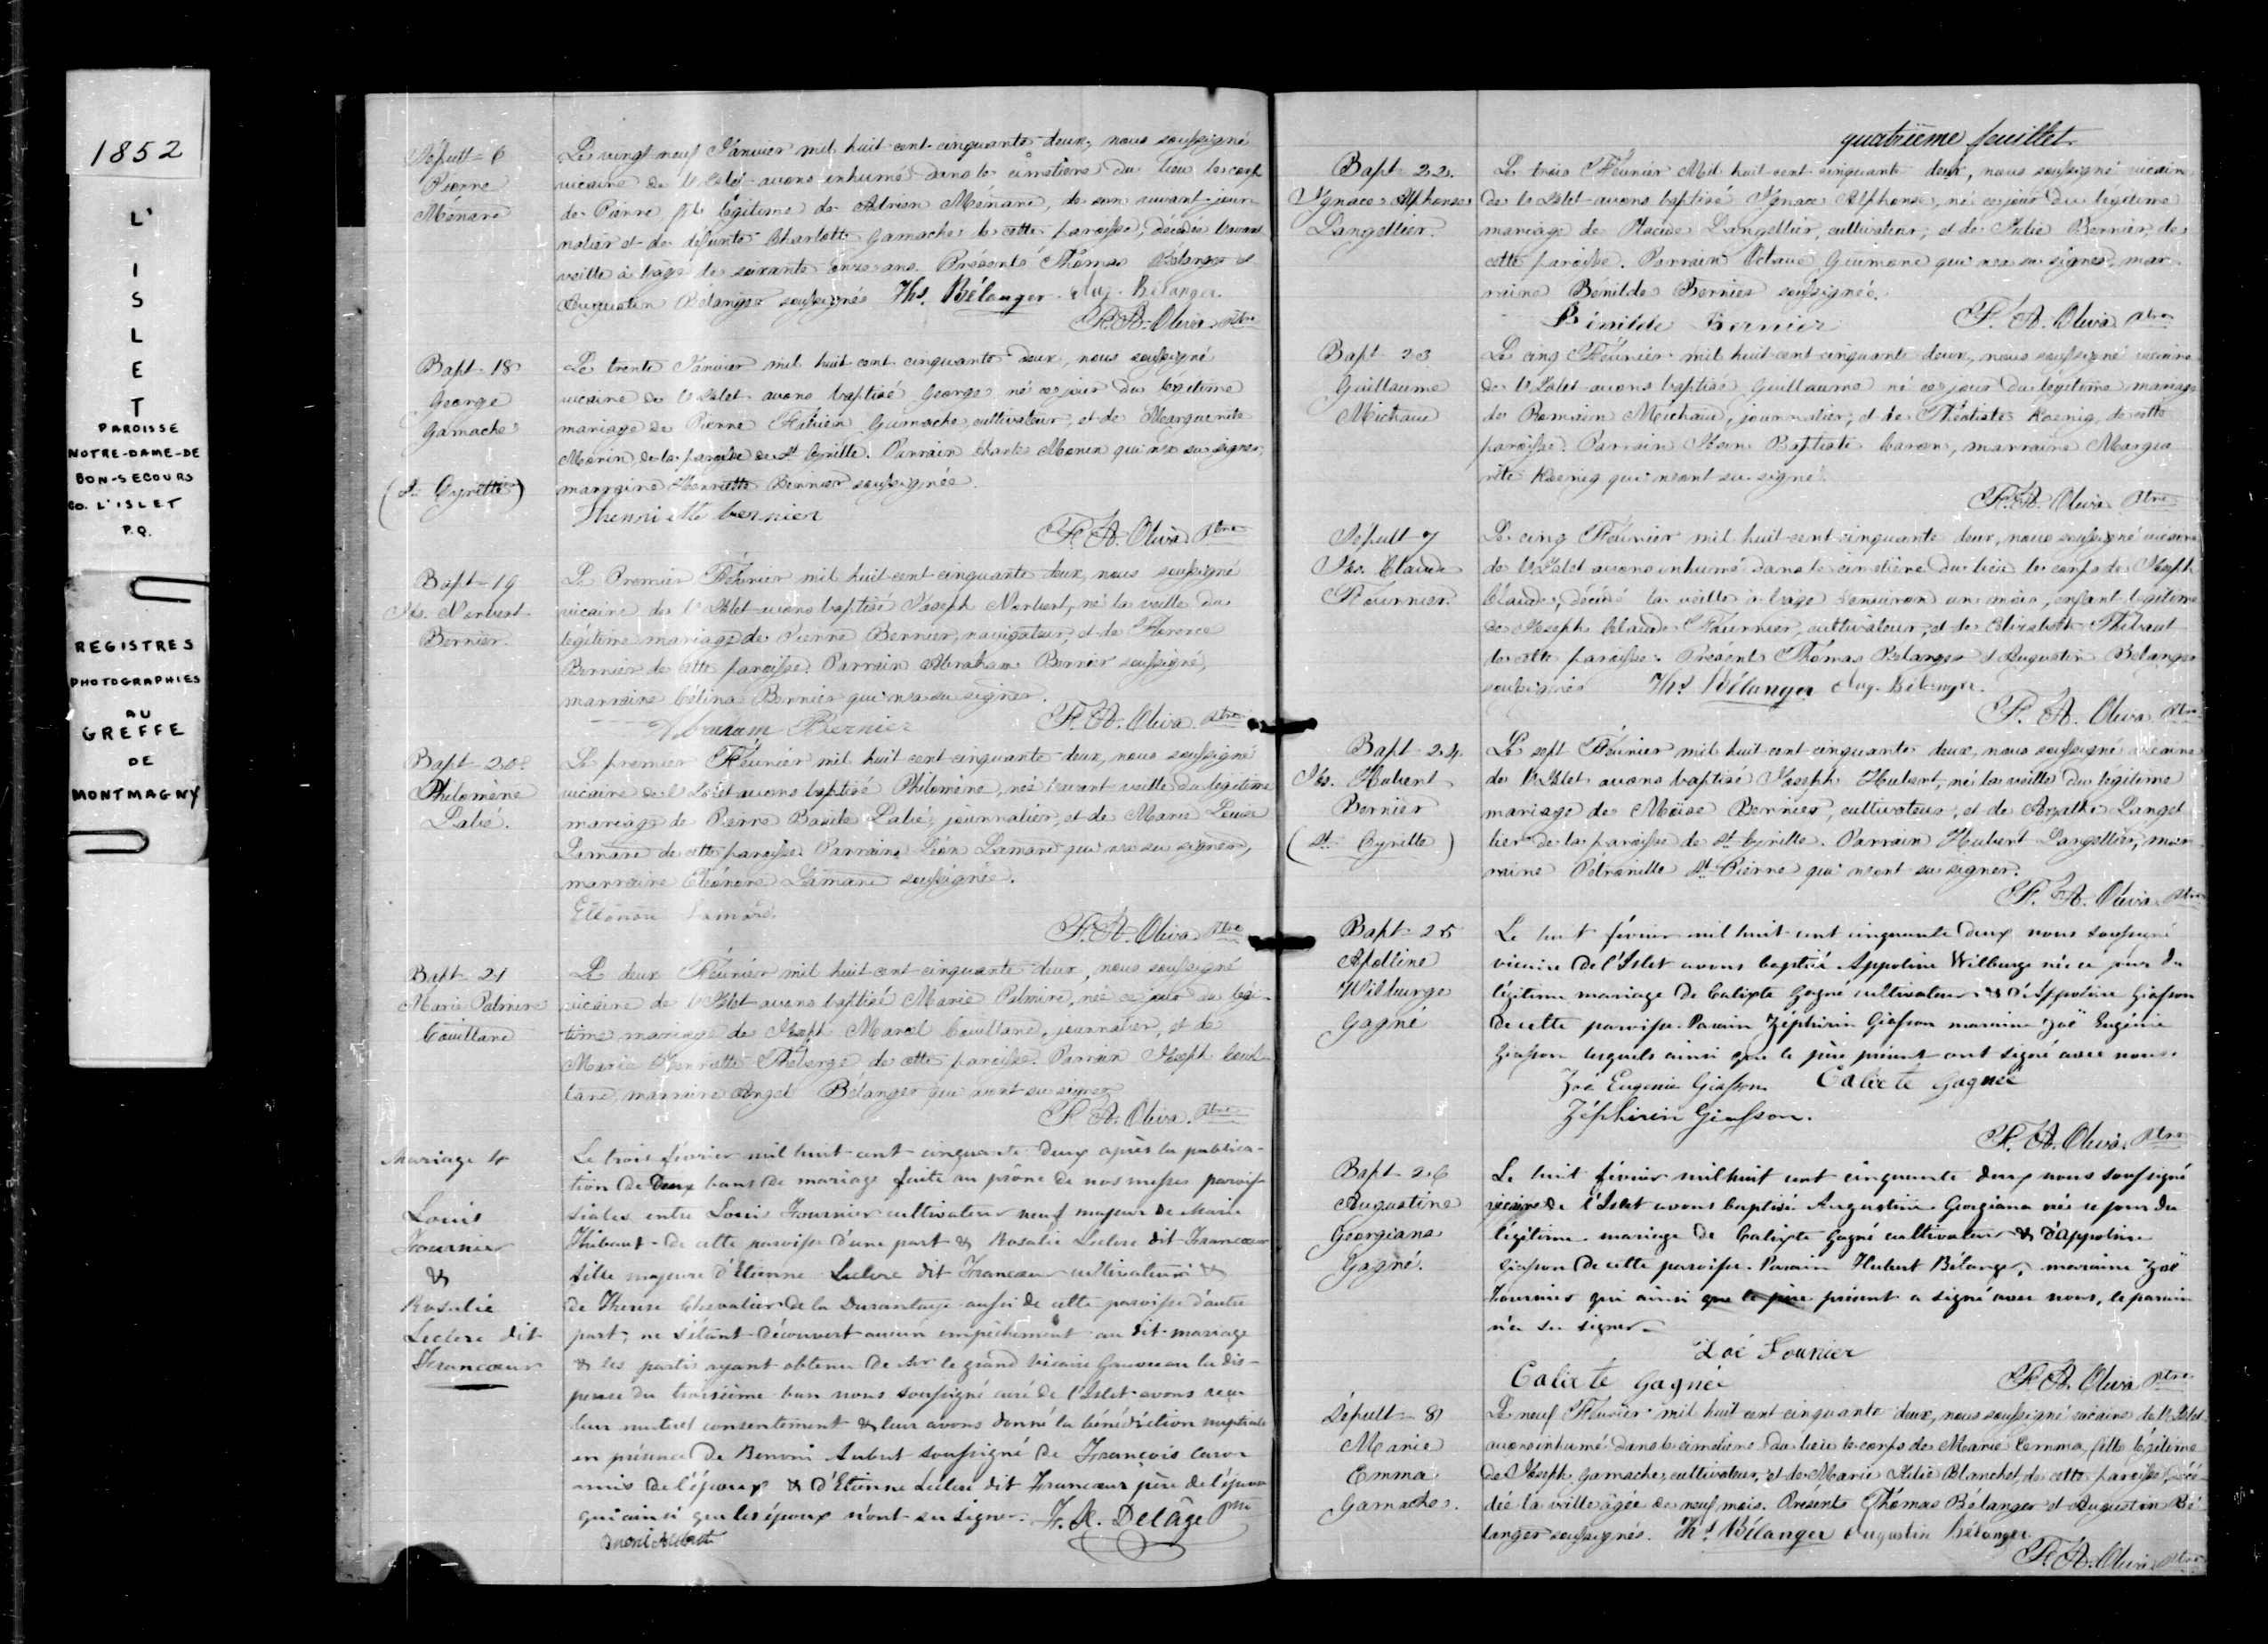 1852
L'
I
S
L
E
T
PAROISSE
NOTRE-DAME-DE
BON-SECOURS
CO. L'ISLET
P.Q.
REGISTRES
PHOTOGRAPHIES
AU
GREFFE
DE
MONTMAGNY
Sepult - 6
Pierre
Ménard
Le vingt neuf Janvier mil huit cent cinquante deux, nous soussigné
vicaire de l'Islet avons inhumé dans le cimetière du lieu le corps
de Pierre fils légitime de Adrien Ménard, de son vivant jour-
nalier et de défunte Charlotte Gamache de cette paroisse, décédé l'avant
veille à l'âge de soixante onze ans. Présents Thomas Bélanger et
Augustin Bélanger soussignés Ths. Bélanger Aug. Bélanger
F. A. Oliva Ptre
Bapt - 18
George
Gamache
(St Cyrille)
Le trente Janvier mil huit cent cinquante deux, nous soussigné
vicaire de l'Islet avons baptisé George né ce jour du légitime
mariage de Pierre Gamache, cultivateur, et de Marguerite
Morin, de la paroisse de St Cyrille. Parrain Charles Morin qui n'a su signer,
marraine Henriette Bernier soussignée.
Henriette bernier
F. A. Oliva Ptre
Bapt - 19
Jos. Norbert
Bernier
Le Premier Février mil huit cent cinquante deux, nous soussigné
vicaire de l'Islet avons baptisé Joseph Norbert, né la veille du
légitime mariage de Pierre Bernier, navigateur, et de Florence
Bernier de cette paroisse. Parrain Abraham Bernier soussigné,
marraine Célina Bernier qui n'a su signer.
Abraham Bernier
F. A. Oliva Ptre
Bapt - 20
Philomène
Labé.
Le premier Février mil huit cent cinquante deux, nous soussigné
vicaire de l'Islet avons baptisé Philomène, née l'avant veille du légitime
mariage de Pierre Basile Labé, journalier, et de Marie Louise
Lemard de cette paroisse. Parrain Léon Lamard qui n'a su signer,
marraine Eléonore Lamard soussignée.
F. A. Oliva Ptre
Bapt - 21
Marie Palmire
Couillard
Le deux Février mil huit cent cinquante deux, nous soussigné
vicaire de l'Islet avons baptisé Marie Palmire, née ce jour du légi-
time mariage de Joseph Marcel Couillard, journalier, et de
Marie Henriette Théberge de cette paroisse. Parrain Joseph Couil-
lard, marraine Angel Bélanger qui n'ont su signer
F. A. Oliva. Ptre
Mariage 4
Louis
Fournier
&
Rosalie
Leclerc dit
Francoeur
Le trois février mil huit cent cinquante deux après la publica-
tion de deux bans de mariage faite au prône de nos messes parois-
siales entre Louis Fournier cultivateur veuf majeur de Marie
Thibaut de cette paroisse d'une part & Rosalie Leclerc dit Francoeur
fille majeure d'Etienne Leclerc dit Francoeur cultivateur &
de Therese Chevalier de la Durantaye aussi de cette paroisse d'autre
part; ne s'étant découvert aucun empêchement au dit mariage
& les partis ayant obtenu de Mr le grand Vicaire la dis-
pense du troisième ban nous soussigné curé de l'Islet avons reçu
leur mutuel consentement & leur avons donné la bénédiction nuptiale
en présence de Benoni Aubut soussigné de François Caron
amis de l'époux & d'Etienne Leclerc dit Francoeur père de l'épouse
qui ainsi que les époux n'ont su signer. F. X. Delâge Ptre
quatrième feuillet
Bapt - 22.
Ignace Alphonse
Langellier.
Le trois Février Mil huit cent cinquante deux, nous soussigné vicaire
de l'Islet avons baptisé Ignace Alphonse, né ce jour du légitime
mariage de Placide Langellier, cultivateur, et de Julie Bernier, de
cette paroisse. Parrain Octave Guimond qui n'a su signer, mar-
raine Benilde Bernier soussignée.
Bénilde Bernier
F. A. Oliva Ptre
Bapt - 23
Guillaume
Michaud
Le cinq Février mil huit cent cinquante deux, nous soussigné vicaire
de l'Islet avons baptisé Guillaume né ce jour du légitime mariage
de Romain Michaud, journalier, et de Théotiste Koenig, de cette
paroisse. Parrain Jean Baptiste Caron, marraine Margue
rite Koenig qui n'ont su signé.
F. A. Oliva Ptre
Sepult 7
Jos. Claude
Fournier.
Le cinq Février mil huit cent cinquante deux, nous soussigné vicaire
de l'Islet avons inhumé dans le cimetière du lieu le corps de Joseph
Claude, décédé la veille à l'âge d'environ un mois, enfant légitime
de Joseph Claude Fournier, cultivateur, et de Elizabeth Thibaut
de cette paroisse. Présents Thomas Bélanger & Augustin Bélanger
soussignés Ths Bélanger Aug. Bélanger.
F. A. Oliva Ptre
Bapt - 24
Jos. Hubert
Bernier
(St Cyrille)
Le sept Février mil huit cent cinquante deux, nous soussigné vicaire
de l'Islet avons baptisé Joseph Hubert, né la veille du légitime
mariage de Moïse Bernier, cultivateur, et de Langel
lier de la paroisse de St Cyrille. Parrain Hubert Langellier, mar-
raine Pétronille St Pierre qui n'ont su signer.
F. A. Oliva Ptre
Bapt - 25
Apolline
Wilburge
Gagné
Le huit février mil huit cent cinquante deux nous soussigné
vicaire de l'Islet avons baptisé Appoline Wilburge née ce jour du
légitime mariage de Calixte Gagné cultivateur & d'Appoline Giasson
de cette paroisse. Parain Zéphirin Giasson maraine Zoë Eugénie
Giasson lesquels ainsi que le père présent ont signé avec nous.
Zoé Eugenie Giasson Calixte Gagnée
Zéphirin Giasson.
F. A. Oliva. Ptre
Bapt - 26
Augustine
Georgiana
Gagné.
Le huit février mil huit cent cinquante deux nous soussigné
vicaire de l'Islet avons baptisé Augustine Georgiana née ce jour du
légitime mariage de Calixte Gagné cultivateur & d'Appoline
Giasson de cette paroisse. Parain Hubert Bélanger, maraine Zoë
Fournier qui ainsi que le père présent a signé avec nous, le parain
n'a su signer.
Zoé Founier
Calixte Gagnée
F. A. Oliva Ptre
Sépult - 8
Marie
Emma
Gamache.
Le neuf Février mil huit cent cinquante deux, nous soussigné vicaire de l'Islet
avons inhumé dans le cimetière du lieu le corps de Marie Emma, fille légitime
de Joseph Gamache, cultivateur, et de Marie Julie Blanchet, de cette paroisse, décé-
dée la veille âgée de neuf mois. Présents Thomas Bélanger et Augustin Bé-
langer soussignés. Ths Bélanger Augustin Bélanger
F. A. Oliva Ptre